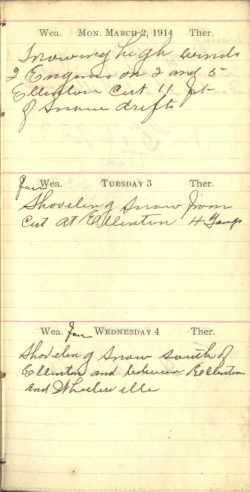 Wea. MON. MARCH 2, 1914 Ther.
Snowing high winds
2 Engines on 2 and 5
Ellinton Cut 11 ft
of Snow drifts
Fair Wea. TUESDAY 3 Ther.
Shoveling Snow from
Cut at Ellinton 4 Gangs
Wea. Fair WEDNESDAY 4 Ther.
Shoveling Snow South of
Ellinton and between Ellinton
and Wheelerville